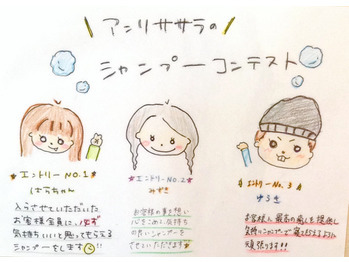 アンリササラの
シャンプーコンテスト
エントリーNO.1
はるちゃん
入らさせていただいた
お客様全員に必ず
気持ちいいと思ってもらえる
シャンプーをします
エントリーNO.2
みずき
お客様の事を想い
心をこめた気持ち
の良いシャンプーを
させていただきます
エントリーNo.3
ゆうき
お客様に最高の癒しを提供し
気持ちいいシャンプーで
頑張ります!!